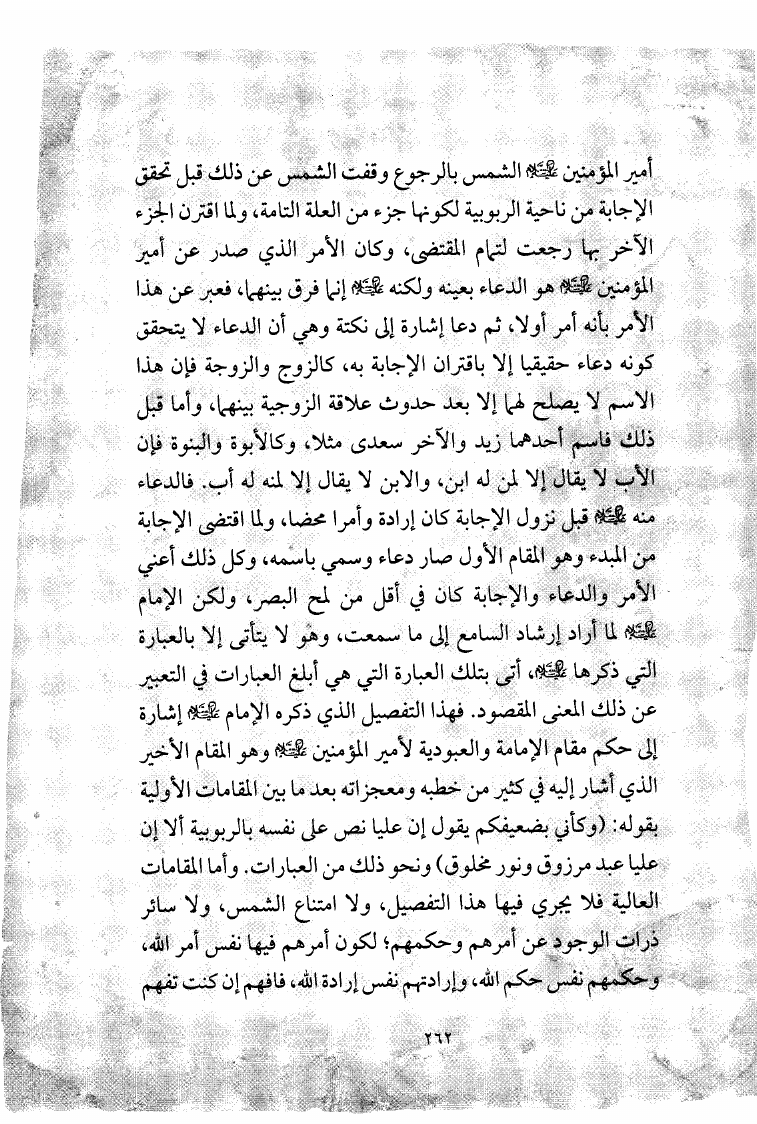 أمير المؤمنين عليه السلام الشمس بالرجوع وقفت الشمس عن ذلك قبل تحقق
الإجابة من ناحية الربوبية لكونها جزء من العلة التامة، ولما اقترن الجزء
الآخر بها رجعت لتمام المقتضى، وكان الأمر الذي صدر عن أمير
المؤمنين عليه السلام هو الدعاء بعينه ولكنه عليه السلام إنما فرق بينهما، فعبر عن هذا
الأمر بأنه أمر أولا، ثم دعا إشارة إلى نكتة وهي أن الدعاء لا يتحقق
كونه دعاء حقيقيا إلا باقتران الإجابة به، كالزوج والزوجة فإن هذا
الاسم لا يصلح لهما إلا بعد حدوث علاقة الزوجية بينهما، وأما قبل
ذلك فاسم أحدهما زيد والآخر سعدى مثلا، وكالأبوة والبنوة فإن
الأب لا يقال إلا لمن له ابن، والابن لا يقال إلا لمنه له أب. فالدعاء
منه عليه السلام قبل نزول الإجابة كان إرادة وأمرا محضا، ولما اقتضى الإجابة
من المبدء وهو المقام الأول صار دعاء وسمي باسمه، وكل ذلك أعني
الأمر والدعاء والإجابة كان في أقل من لمح البصر، ولكن الإمام
عليه السلام لما أراد إرشاد السامع إلى ما سمعت، وهو لا يتأتى إلا بالعبارة
التي ذكرها عليه السلام، أتى بتلك العبارة التي هي أبلغ العبارات في التعبير
عن ذلك المعنى المقصود. فهذا التفصيل الذي ذكره الإمام عليه السلام إشارة
إلى حكم مقام الإمامة والعبودية لأمير المؤمنين عليه السلام وهو المقام الأخير
الذي أشار إليه في كثير من خطبه ومعجزاته بعد ما بين المقامات الأولية
بقوله: (وكأني بضعيفكم يقول إن عليا نص على نفسه بالربوبية ألا إن
عليا عبد مرزوق ونور مخلوق) ونحو ذلك من العبارات. وأما المقامات
العالية فلا يجري فيها هذا التفصيل، ولا امتناع الشمس، ولا سائر
ذرات الوجود عن أمرهم وحكمهم؛ لكون أمرهم فيها نفس أمر الله،
وحكمهم نفس حكم الله، وإرادتهم نفس إرادة الله، فافهم إن كنت تفهم
٢٦٢